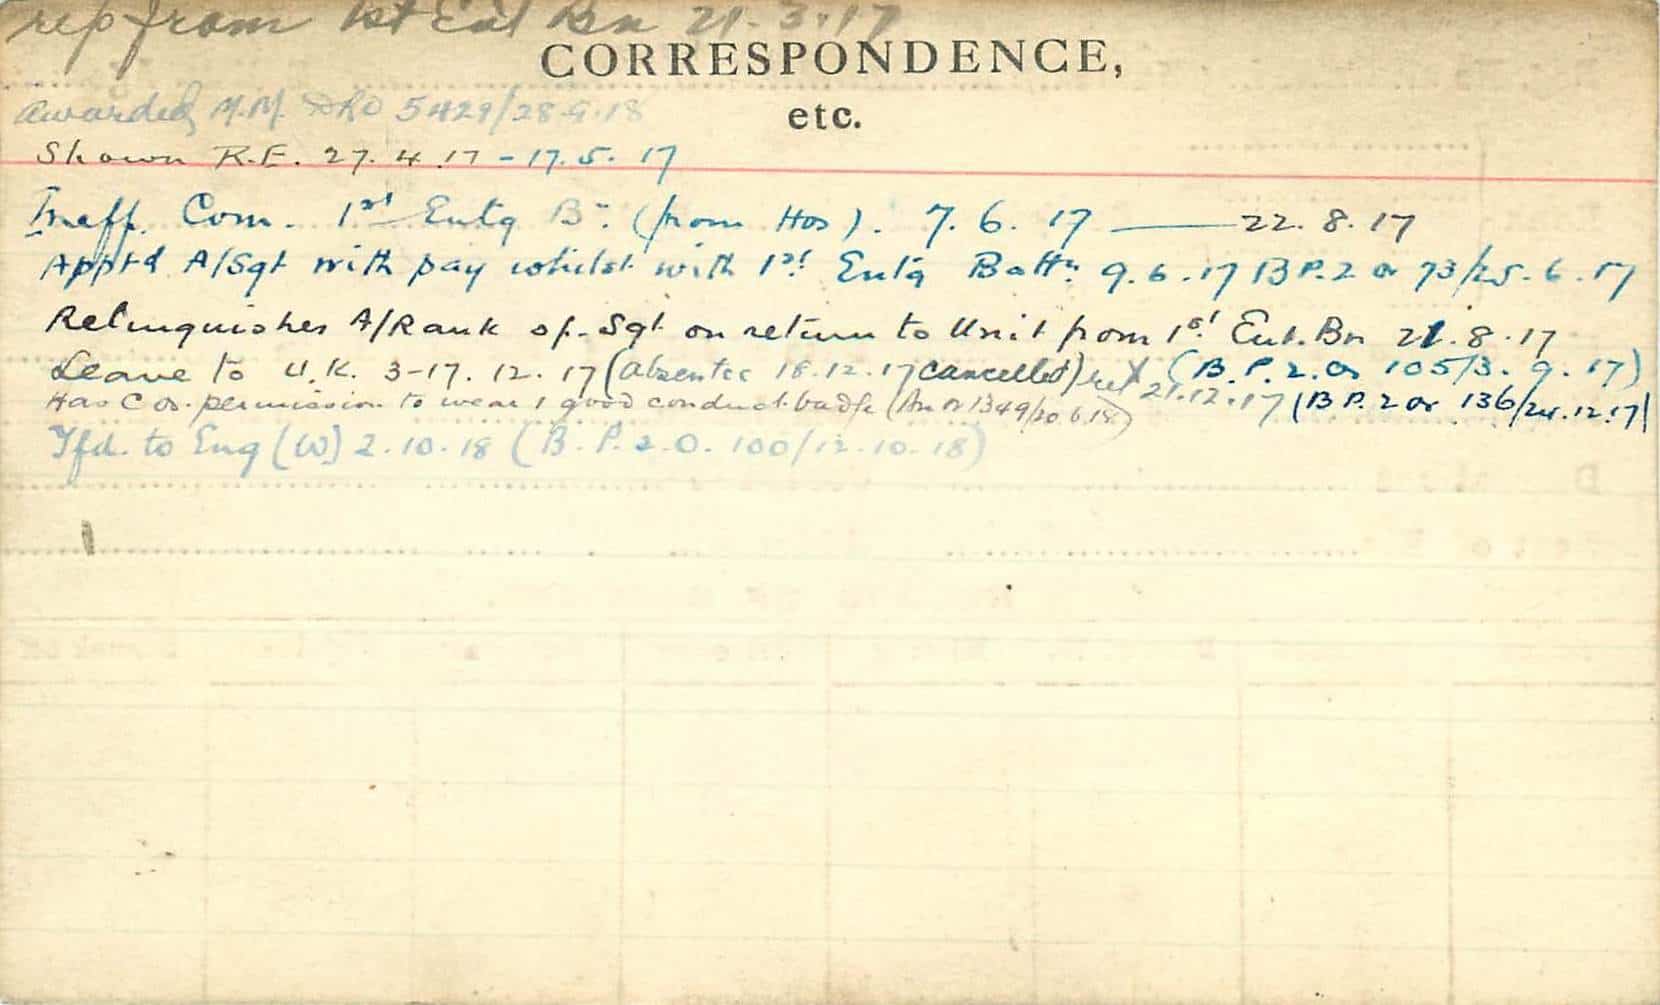 rep from 1st Ent Bn 21.3.17
CORRESPONDENCE,
etc.
Awarded M.M. DRO 5429/28.9.18
Shown R.E. 27.4.17 - 17.5.17
Ineff. Com. 1st Entg Bn. (from Hos). 7.6.17 — 22.8.17
Apptd A/Sgt with pay whilst with 1st Entg Battn. 9.6.17 B P.2 Or 73/25.6.17
Relinquishes A/Rank of Sgt on return to Unit from 1st Ent. Bn 21.8.17
Leave to U.K. 3-17.12.17 (Absentee 18.12.17 cancelled) ret (B.P.2.Or 105/3.9.17)
Has C Os. permission to wear 1 good conduct badge (An Or 1349/20.6.18) 21.12.17 (B P. 2 Or 136/24.12.17)
Tfd. to Eng (W) 2.10.18 (B.P.2.O. 100/12.10.18)